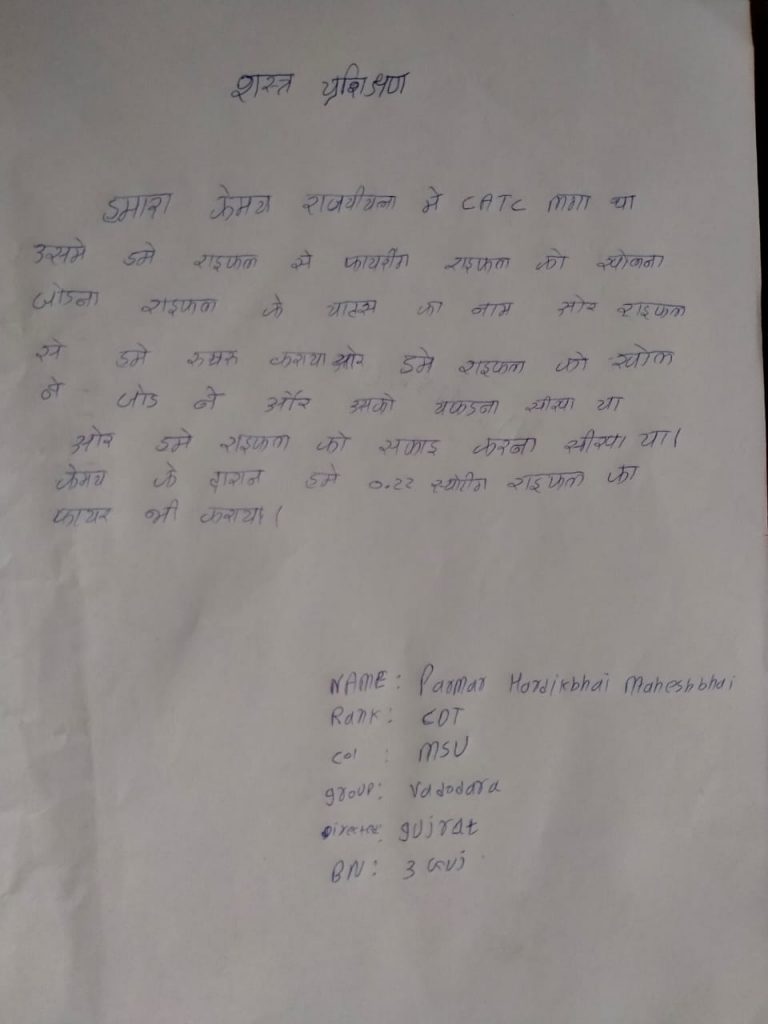 शस्त्र प्रशिक्षण
हमारा केमप राजपीपला मे CATC लगा था
उसमे हमे राइफल से फायरींग राइफल को खोलना
जोडना राइफल के पाटस का नाम ओर राइफल
से हमे रुबरु कराया ओर हमे राइफल को खोल
ने जोड ने और उसको पकडना सीखा था
ओर हमे राइफल को सफाइ करना सीखा था।
केमप के दारान हमे 0.22 स्पोटींग राइफल का
फायर भी कराया।
NAME: Parmar Hardikbhai Maheshbhai
Rank: CDT
Col : MSU
group: Vadodara
Directer: gujrat
BN: 3 Guj